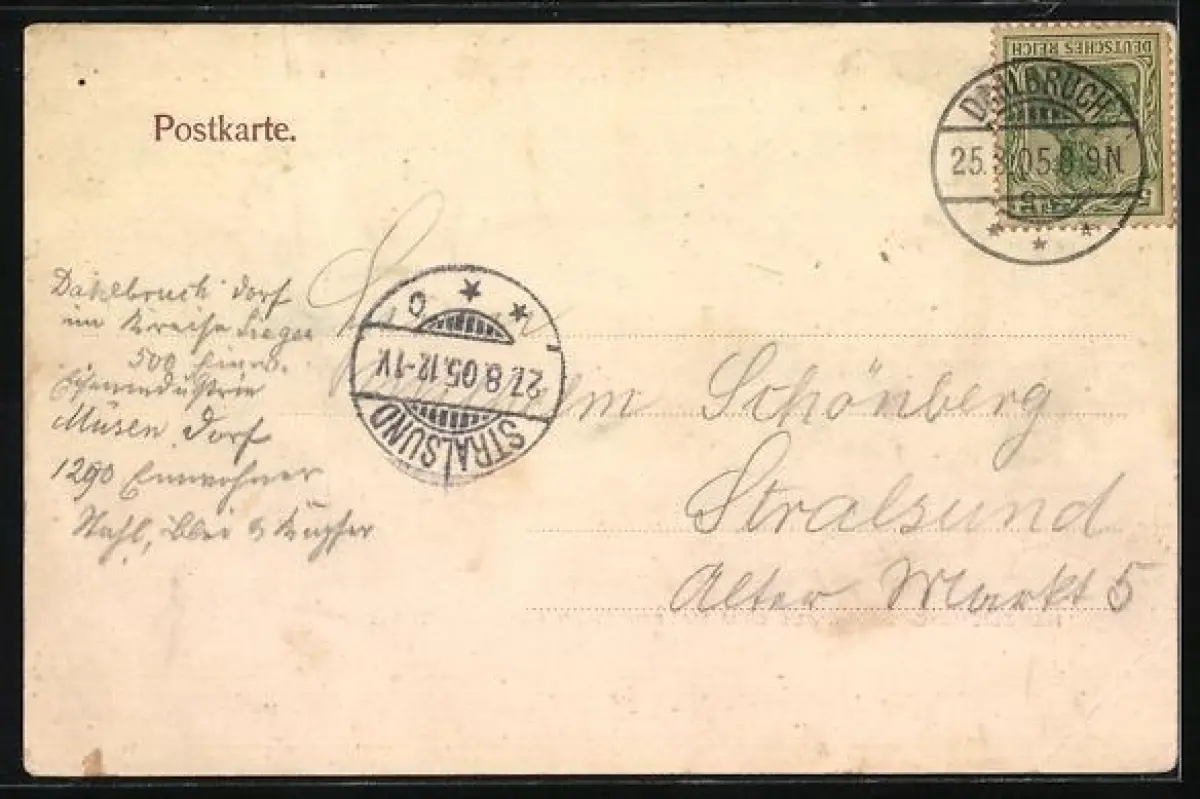 DEUTSCHES REICH
Postkarte.
DAHLBRUCH
25.8.05.8-9N.
Dahlbruch Dorf
im Kreise Siegen
500 Einw.
Eisenindustrie
Müsen Dorf
1290 Einwohner
Stahl, Blei &
C
27.8.05.12-1V.
STRALSUND
Herrn
Schönberg
Stralsund
Alter Markt 5